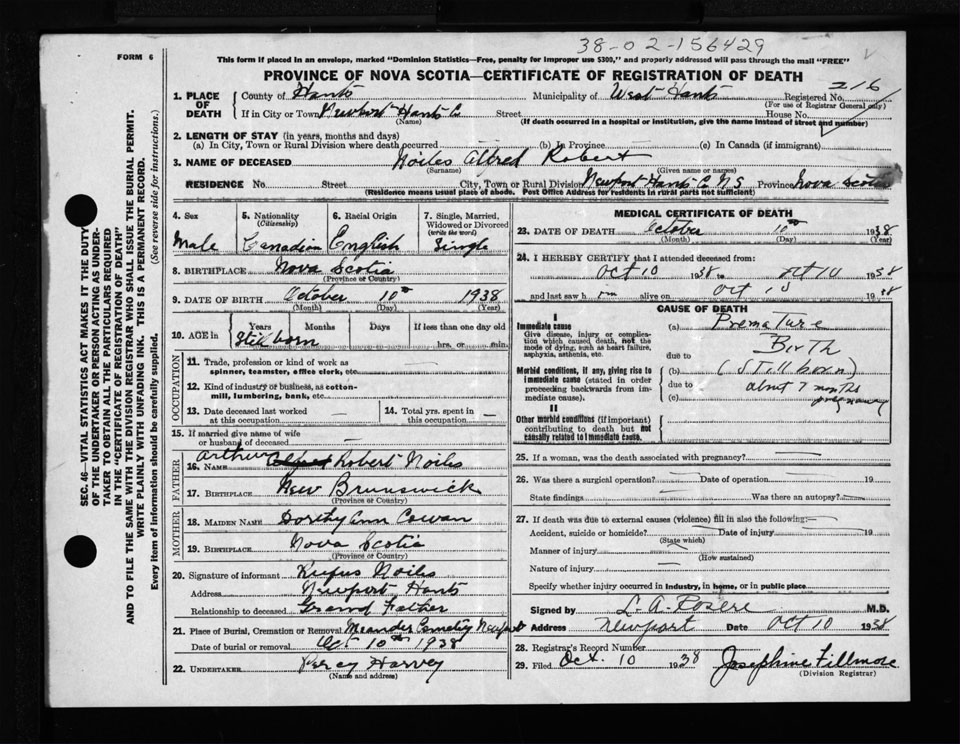 38-02-156429
FORM 6
This form if placed in an envelope, marked "Dominion Statistics—Free, penalty for improper use $300," and properly addressed will pass through the mail "FREE"
PROVINCE OF NOVA SCOTIA—CERTIFICATE OF REGISTRATION OF DEATH
SEC. 46—VITAL STATISTICS ACT MAKES IT THE DUTY
OF THE UNDERTAKER OR PERSON ACTING AS UNDER-
TAKER TO OBTAIN ALL THE PARTICULARS REQUIRED
IN THE "CERTIFICATE OF REGISTRATION OF DEATH"
AND TO FILE THE SAME WITH THE DIVISION REGISTRAR WHO SHALL ISSUE THE BURIAL PERMIT.
WRITE PLAINLY WITH UNFADING INK. THIS IS A PERMANENT RECORD.
Every item of information should be carefully supplied. (See reverse side for instructions.)
1. PLACE OF DEATH
County of Hants Municipality of West Hants Registered No. 216
(For use of Registrar General only)
If in City or Town Newport Hants Co Street House No.
(Name) (If death occurred in a hospital or institution, give the name instead of street and number)
2. LENGTH OF STAY (in years, months and days)
(a) In City, Town or Rural Division where death occurred (b) In Province (c) In Canada (if immigrant)
3. NAME OF DECEASED Noiles Alfred Robert
(Surname) (Given name or names)
RESIDENCE No. Street City, Town or Rural Division Newport Hants Co N S Province Nova Scotia
(Residence means usual place of abode. Post Office Address for residents in rural parts not sufficient)
4. Sex
Male
5. Nationality
(Citizenship)
Canadian
6. Racial Origin
English
7. Single, Married,
Widowed or Divorced
(write the word)
Single
8. BIRTHPLACE Nova Scotia
(Province or Country)
9. DATE OF BIRTH October 10th 1938
(Month) (Day) (Year)
10. AGE in Years Months Days If less than one day old
Stillborn hrs. or min.
OCCUPATION
11. Trade, profession or kind of work as
spinner, teamster, office clerk, etc. —
12. Kind of industry or business, as cotton-
mill, lumbering, bank, etc. —
13. Date deceased last worked
at this occupation —
14. Total yrs. spent in
this occupation —
15. If married give name of wife
or husband of deceased —
FATHER
16. NAME Arthur Robert Noiles
17. BIRTHPLACE New Brunswick
(Province or Country)
MOTHER
18. MAIDEN NAME Dorthy Ann Cowan
19. BIRTHPLACE Nova Scotia
(Province or Country)
20. Signature of informant Rufus Noiles
Address Newport Hants
Relationship to deceased Grand Father
21. Place of Burial, Cremation or Removal Meander Cemetery Newport
Date of burial or removal Oct 10th 1938
22. UNDERTAKER Percy Harvey
(Name and address)
MEDICAL CERTIFICATE OF DEATH
23. DATE OF DEATH October 10th 1938
(Month) (Day) (Year)
24. I HEREBY CERTIFY that I attended deceased from:
Oct 10 1938 to Oct 10 1938
and last saw him alive on Oct 10 1938
CAUSE OF DEATH
I
Immediate cause
Give disease, injury or complica-
tion which caused death, not the
mode of dying, such as heart failure,
asphyxia, asthenia, etc.
Morbid conditions, if any, giving rise to
immediate cause (stated in order
proceeding backwards from im-
mediate cause).
II
Other morbid conditions (if important)
contributing to death but not
causally related to immediate cause.
(a) Premature
due to Birth
(b) (Stillborn)
due to about 7 months
(c) pregnancy
25. If a woman, was the death associated with pregnancy? —
26. Was there a surgical operation? — Date of operation 19
State findings Was there an autopsy?
27. If death was due to external causes (violence) fill in also the following:
Accident, suicide or homicide? Date of injury 19
(State which)
Manner of injury
(How sustained)
Nature of injury
Specify whether injury occurred in industry, in home, or in public place
Signed by M.D.
Address Newport Date Oct 10 1938
28. Registrar's Record Number
29. Filed Oct. 10 1938 Josephine Fillmore
(Division Registrar)